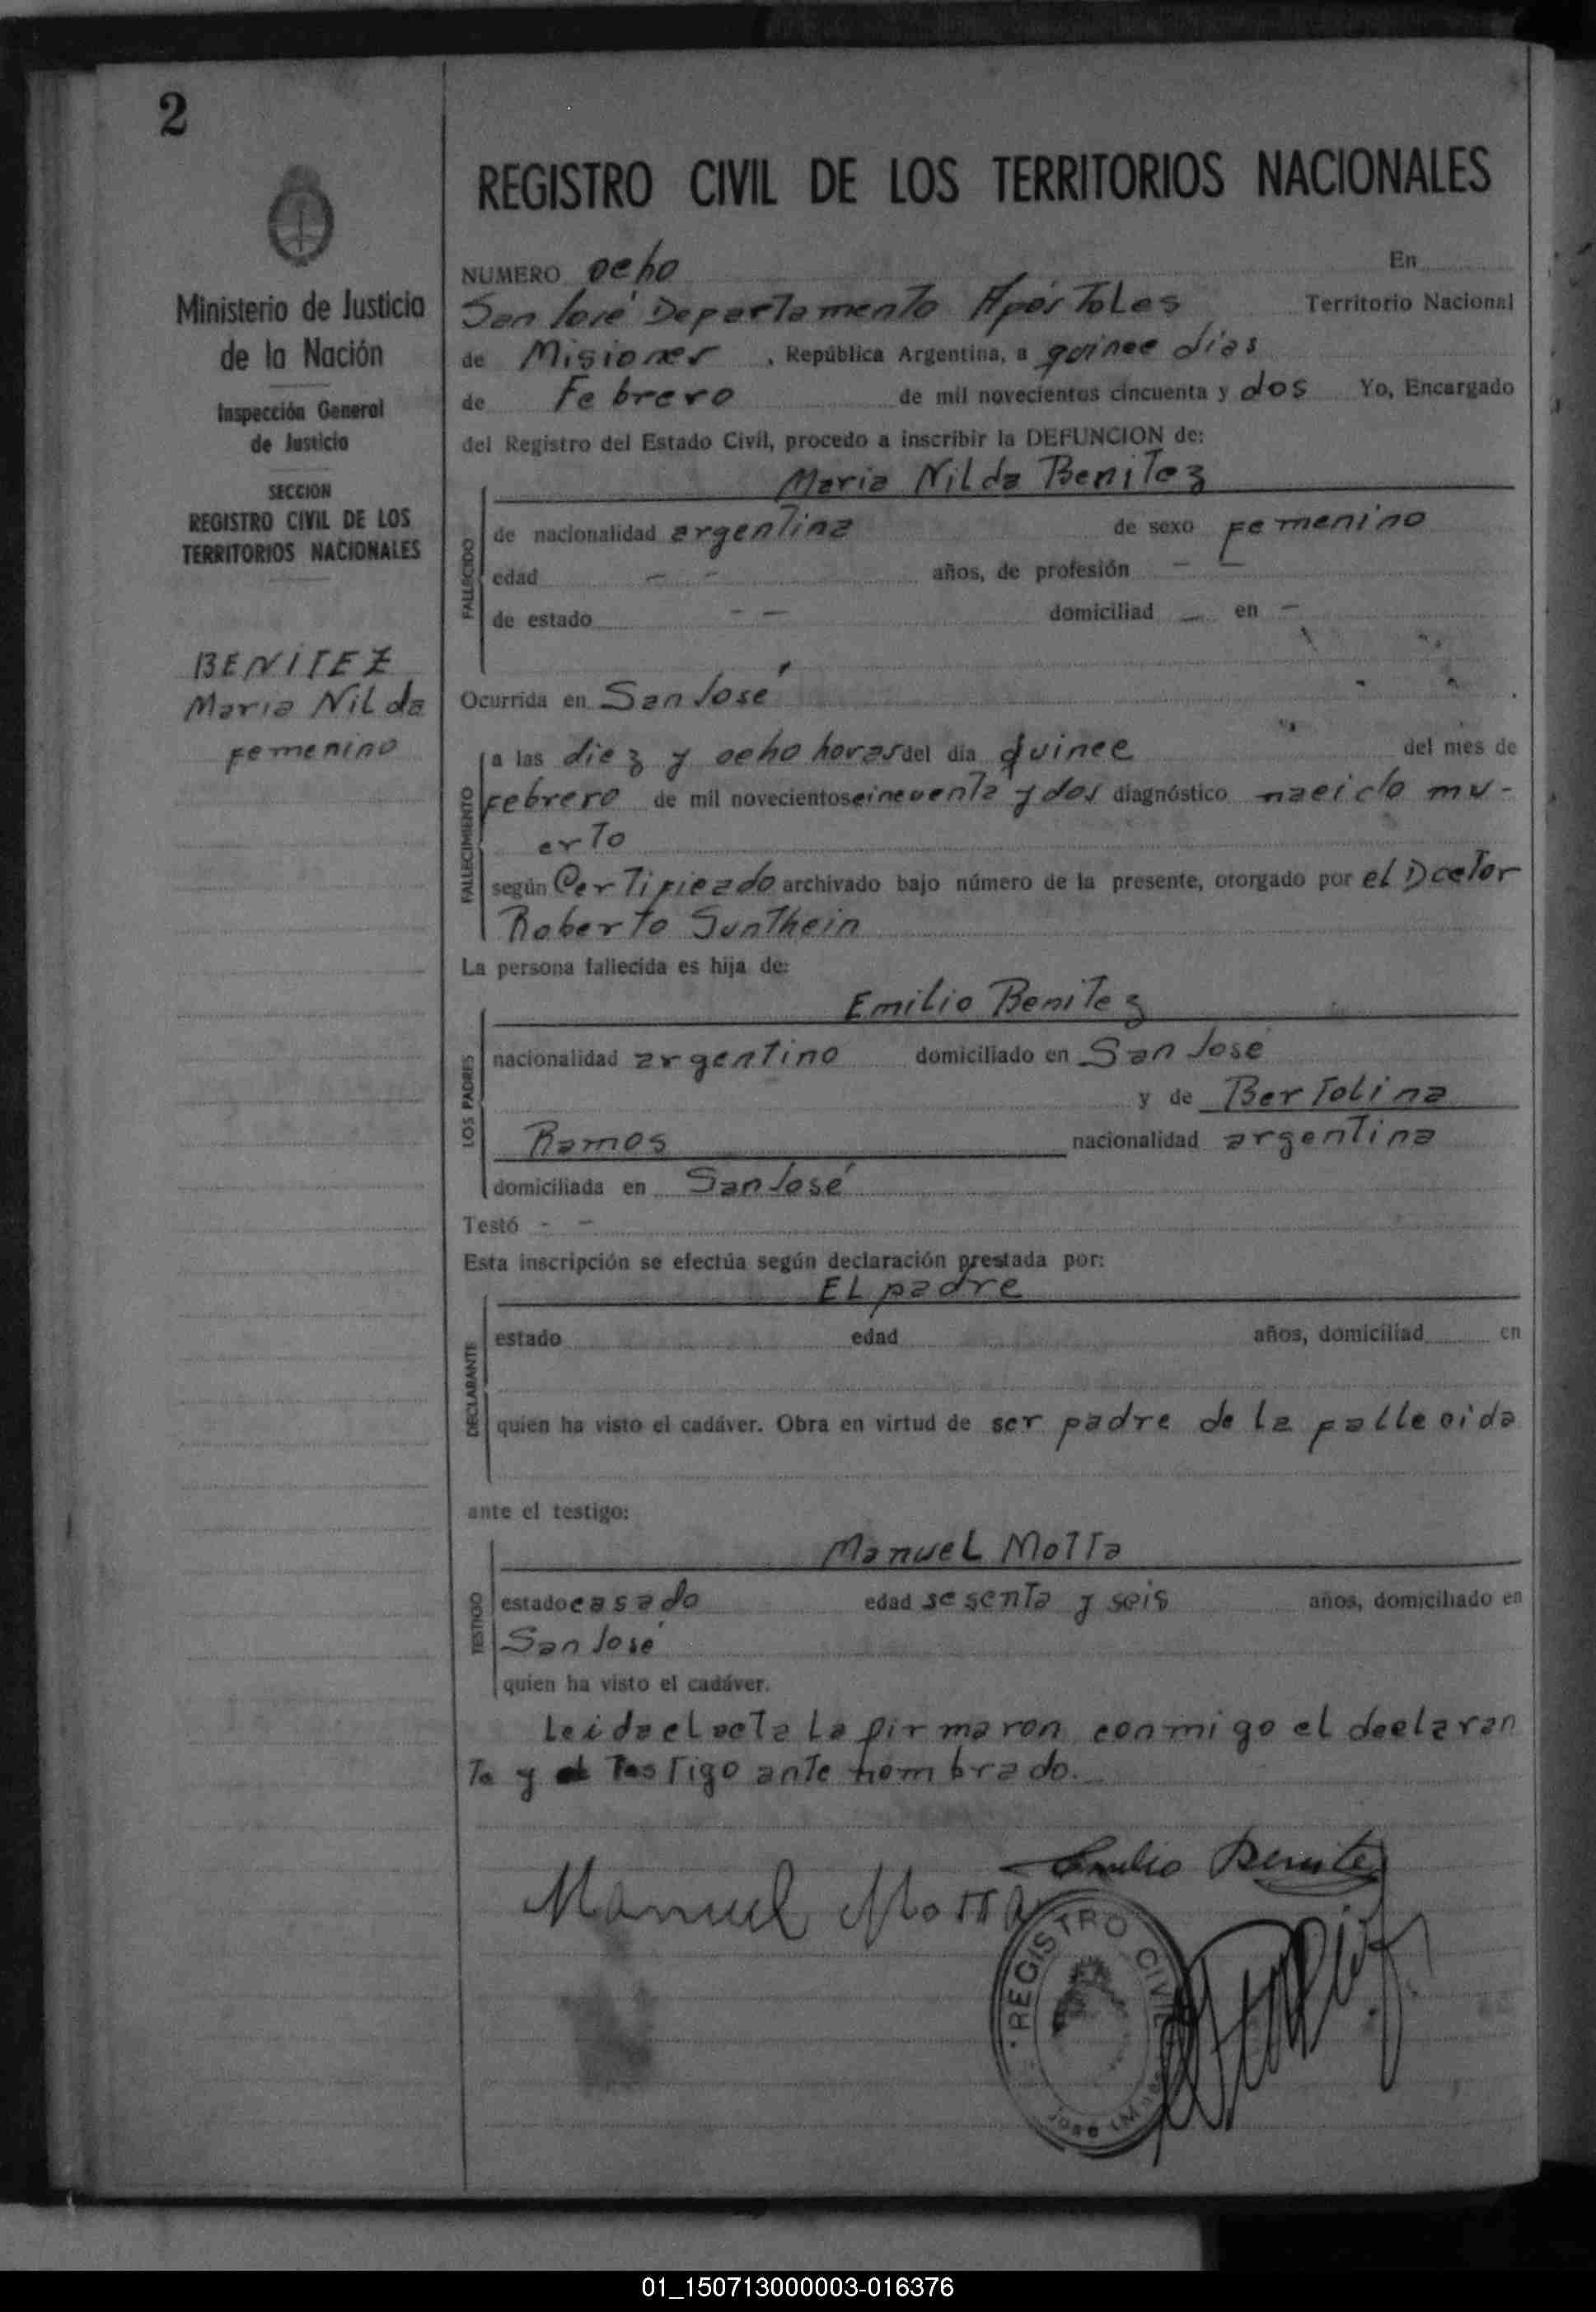 2
REGISTRO CIVIL DE LOS TERRITORIOS NACIONALES
Ministerio de Justicia
de la Nación
Inspección General
de Justicia
SECCION
REGISTRO CIVIL DE LOS
TERRITORIOS NACIONALES
BENITEZ
Maria Nilda
femenino
NUMERO ocho En
San José Departamento Apóstoles Territorio Nacional
de Misiones , República Argentina, a quince dias
de Febrero de mil novecientos cincuenta y dos Yo, Encargado
del Registro del Estado Civil, procedo a inscribir la DEFUNCION de:
Maria Nilda Benitez
FALLECIDO
de nacionalidad argentina de sexo femenino
edad - - años, de profesión - -
de estado - - domiciliad - en -
Ocurrida en San José
FALLECIMIENTO
a las diez y ocho horas del día quince del mes de
febrero de mil novecientos cincuenta y dos diagnóstico nacido mu-
erto
según Certificado archivado bajo número de la presente, otorgado por el Dcctor
Roberto Sunthein
La persona fallecida es hija de:
LOS PADRES
Emilio Benitez
nacionalidad argentino domiciliado en San José
y de Bertolina
Ramos nacionalidad argentina
domiciliada en San José
Testó - -
Esta inscripción se efectúa según declaración prestada por:
El padre
DECLARANTE
estado edad años, domiciliad en
quien ha visto el cadáver. Obra en virtud de ser padre de la fallecida
ante el testigo:
Manuel Motta
TESTIGO
estado casado edad sesenta y seis años, domiciliado en
San José
quien ha visto el cadáver.
Leida el acta la firmaron conmigo el declaran
te y el testigo ante nombrado.
Emilio Benitez
Manuel Motta
REGISTRO CIVIL
01_150713000003-016376